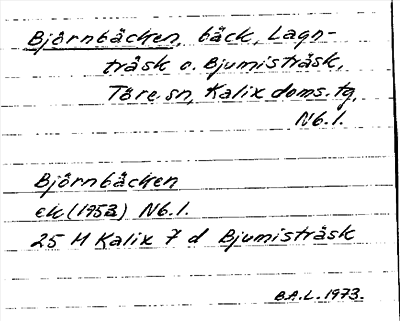 Björnbäcken, bäck, Lagn-
träsk o. Bjumisträsk,
Töre sn, Kalix doms. tg,
Nb.l.
Björnbäcken
ek (1953) Nb.l.
25 M Kalix 7 d Bjumisträsk
B.A.L. 1973.